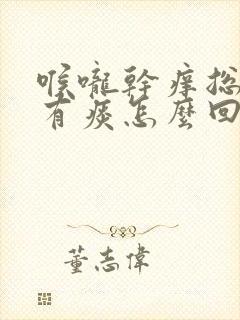 喉嚨幹癢總
有痰怎麼回
董志偉